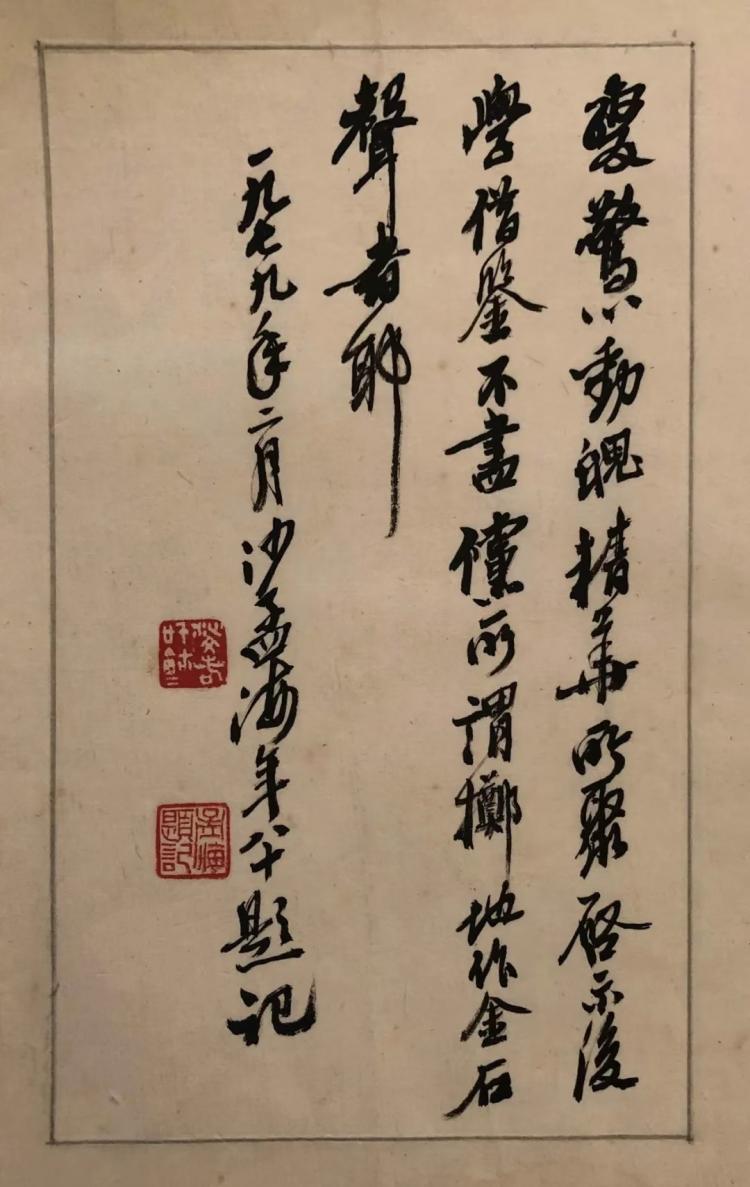 變驚心動魄精華所聚啓示後
學借鑒不盡儻所謂擲地作金石
聲者耶
一九七九年二月沙孟海年八十題記
孟海題記